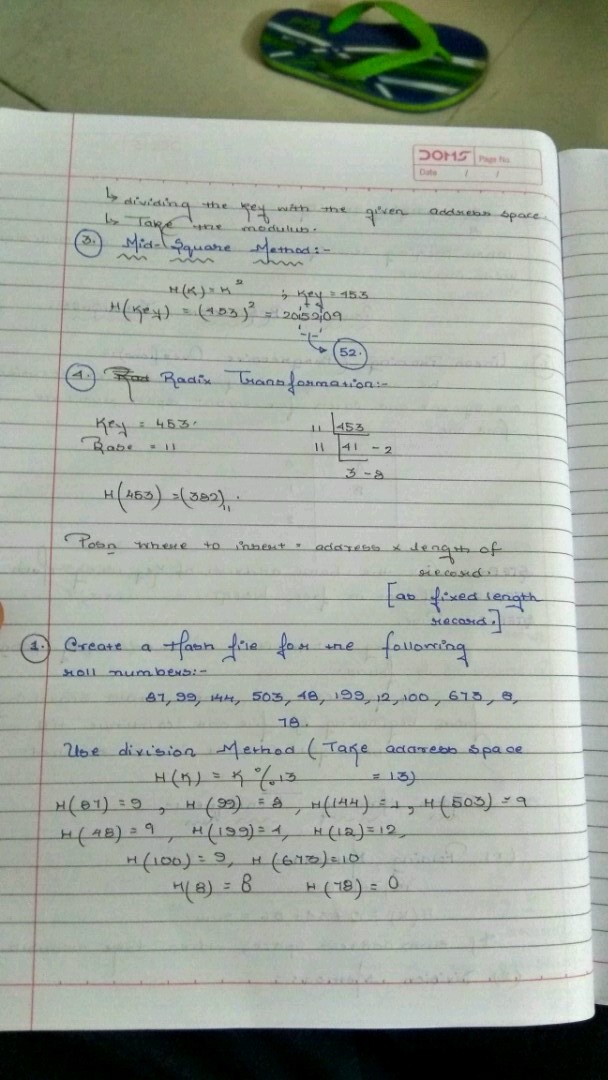 DOMS Page No.
Date / /
↳ dividing the key with the given address space.
↳ Take the modulus.
3. Mid-Square Method:-
H(K) = K² ; Key = 453
H(Key) = (453)² = 205209
52.
4. Radix Transformation:-
Key = 453. 11 453
Base = 11 11 41 - 2
3 - 8
H(453) = (382)₁₁.
Posn where to insert = address x length of
record.
[as fixed length
record.]
1. Create a Hash file for the following
roll numbers:-
87, 99, 144, 503, 48, 199, 12, 100, 673, 8,
78.
Use division Method (Take address space
H(K) = K % 13 = 13)
H(87) = 9, H(99) = 8, H(144) = 1, H(503) = 9
H(48) = 9, H(199) = 4, H(12) = 12,
H(100) = 9, H(673) = 10
H(8) = 8 H(78) = 0